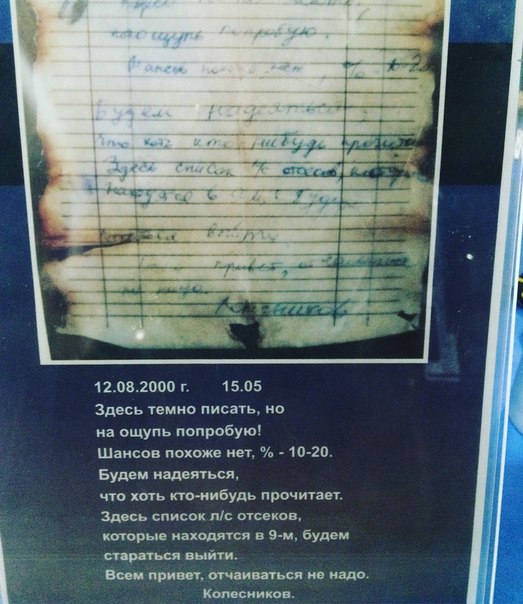 здесь темно писать, но
наощупь попробую.
Шансов похоже нет, % 10-20
Будем надеяться,
что хоть кто нибудь прочитает
Здесь список л/с отсеков, которые
находятся в 9-м и будут
пытаться выйти.
Всем привет, отчаиваться
не надо.
Колесников
12.08.2000 г. 15.05
Здесь темно писать, но
на ощупь попробую!
Шансов похоже нет, % - 10-20.
Будем надеяться,
что хоть кто-нибудь прочитает.
Здесь список л/с отсеков,
которые находятся в 9-м, будем
стараться выйти.
Всем привет, отчаиваться не надо.
Колесников.